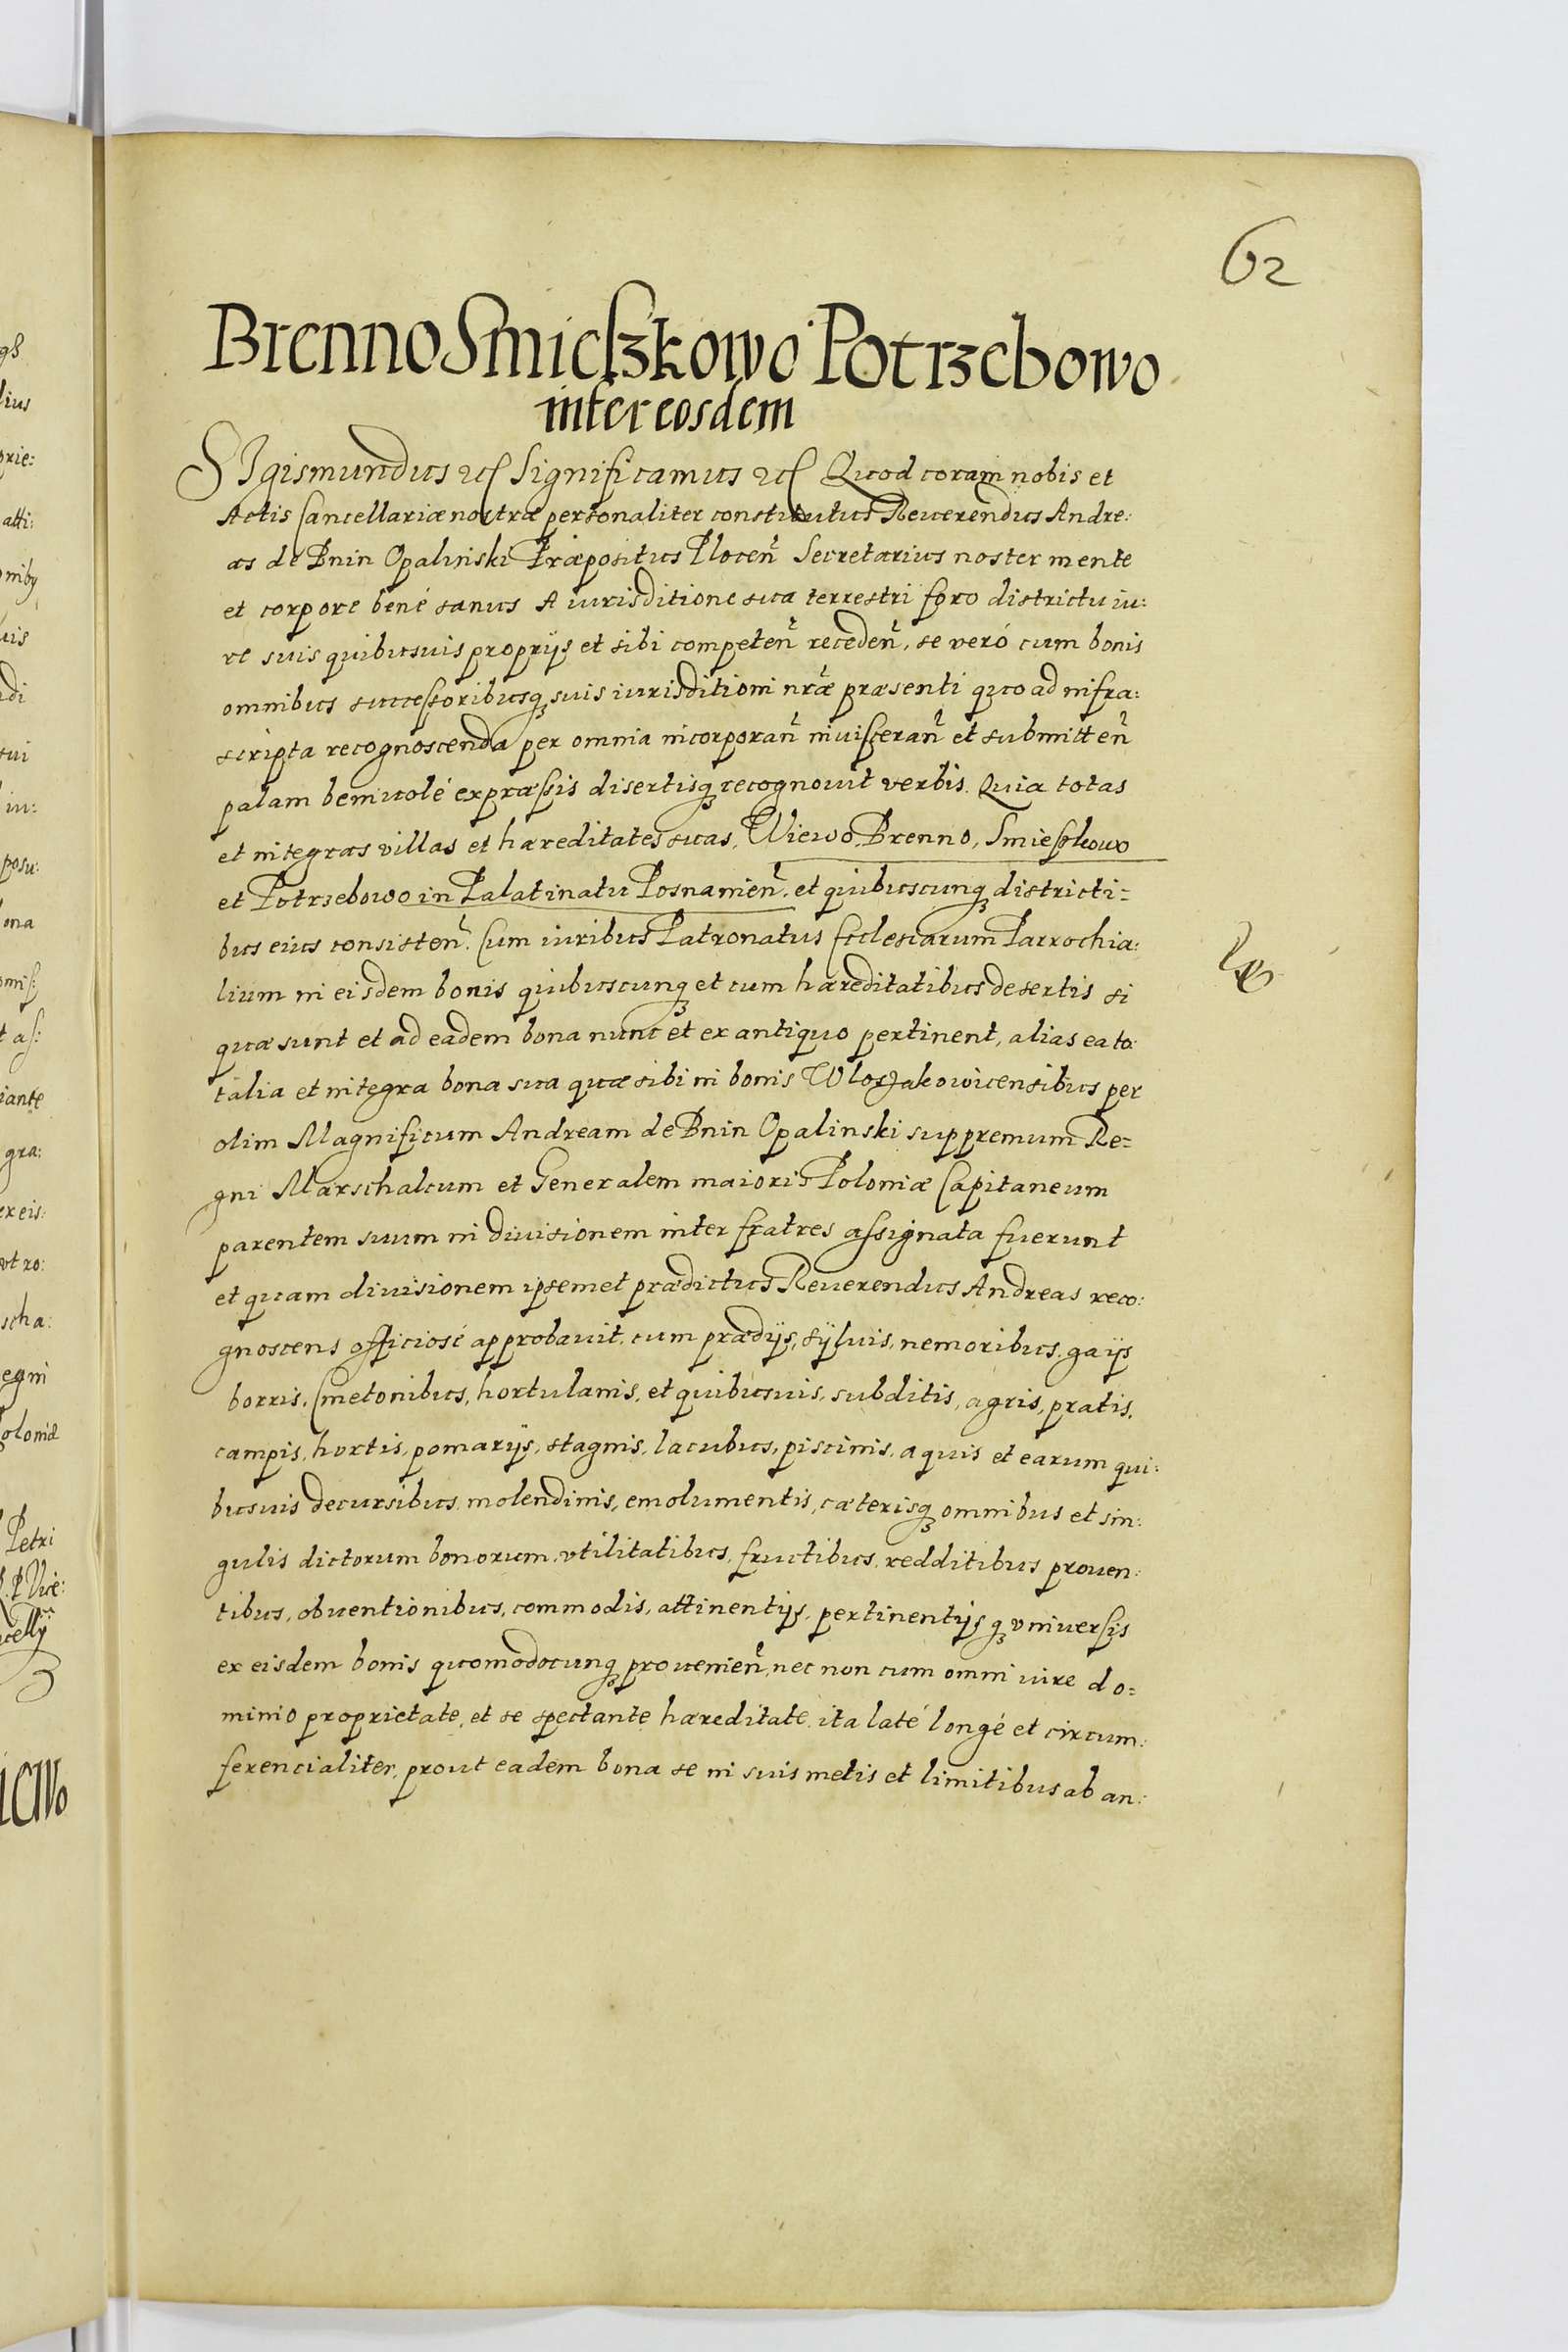 62
Brenno Smieszkowo Potrzebowo
inter eosdem
SIgismundus etc Significamus etc Quod coram nobis et
Actis Cancellariæ nostræ personaliter constitutus Reuerendus Andre:
as de Bnin Opalinski Præpositus Plocen̄ Secretarius noster mente
et corpore bené sanus A iurisditione sua terrestri foro districtu iu:
re suis quibusuis proprijs et sibi competen̄ receden̄, se veró cum bonis
omnibus successoribusq suis iurisditioni nr̄æ præsenti quo ad infra:
scripta recognoscenda per omnia incorporan̄ inuisceran̄ et submitten̄
palam beniuolé expræssis disertisq recognouit verbis. Quia totas
et integras villas et hæreditates suas, Wiewo, Brenno, Smieszkowo
et Potrzebowo in Palatinatu Posnanien̄. et quibuscunq districti=
bus eius consisten̄. Cum iuribus Patronatus Ecclesiarum Parrochia:
lium in eisdem bonis quibuscunq et cum hæreditatibus desertis si
quæ sunt et ad eadem bona nunc et ex antiquo pertinent, alias ea to:
talia et integra bona sua quæ sibi in bonis Wloszakowicensibus per
olim Magnificum Andream de Bnin Opalinski suppremum Re=
gni Marschalcum et Generalem maioris Poloniæ Capitaneum
parentem suum in diuisionem inter fratres assignata fuerunt
et quam diuisionem ipsemet prædictus Reuerendus Andreas reco:
gnoscens officiosé approbauit, cum prædijs, sÿluis, nemoribus, gaijs
borris, Cmetonibus, hortulanis, et quibusuis, subditis, agris, pratis,
campis, hortis, pomarijs, stagnis, lacubus, piscinis, aquis et earum qui:
busuis decursibus, molendinis, emolumentis, cæterisq omnibus et sin:
gulis dictorum bonorum, vtilitatibus, fructibus, redditibus prouen:
tibus, obuentionibus, commodis, attinentijs, pertinentijsq vniuersis
ex eisdem bonis quomodocunq prouenien̄, nec non cum omni iure do=
minio proprietate, et se spectante hæreditate, ita laté longé et circum:
ferencialiter, prout eadem bona se in suis metis et limitibus ab an: